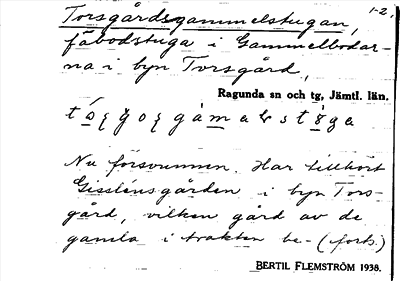 1-2.
Torsgårdsgammelstugan,
fäbodstuga i Gammelbodar-
na i byn Torsgård,
Ragunda sn och tg, Jämtl. län.
Nu försvunnen. Har tillhört
Gisslénsgården i byn Tors-
gård, vilken gård av de
gamla i trakten be- (forts.)
BERTIL FLEMSTRÖM 1938.